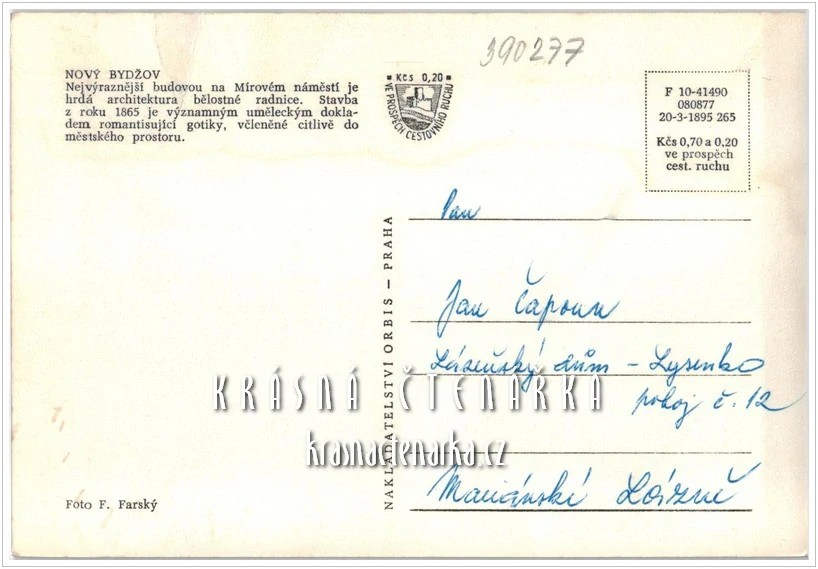 390277
NOVÝ BYDŽOV
Nejvýraznější budovou na Mírovém náměstí je
hrdá architektura bělostné radnice. Stavba
z roku 1865 je významným uměleckým dokla-
dem romantisující gotiky, včleněné citlivě do
městského prostoru.
Kčs 0,20
VE PROSPĚCH CESTOVNÍHO RUCHU
F 10-41490
080877
20-3-1895 265
Kčs 0,70 a 0,20
ve prospěch
cest. ruchu
NAKLADATELSTVÍ ORBIS – PRAHA
Pan
Jan Čapoun
Lázeňský dům – Lysenko
pokoj č. 12
Mariánské Lázně
KRÁSNÁ ČTENÁŘKA
krasnactenarka.cz
Foto F. Farský